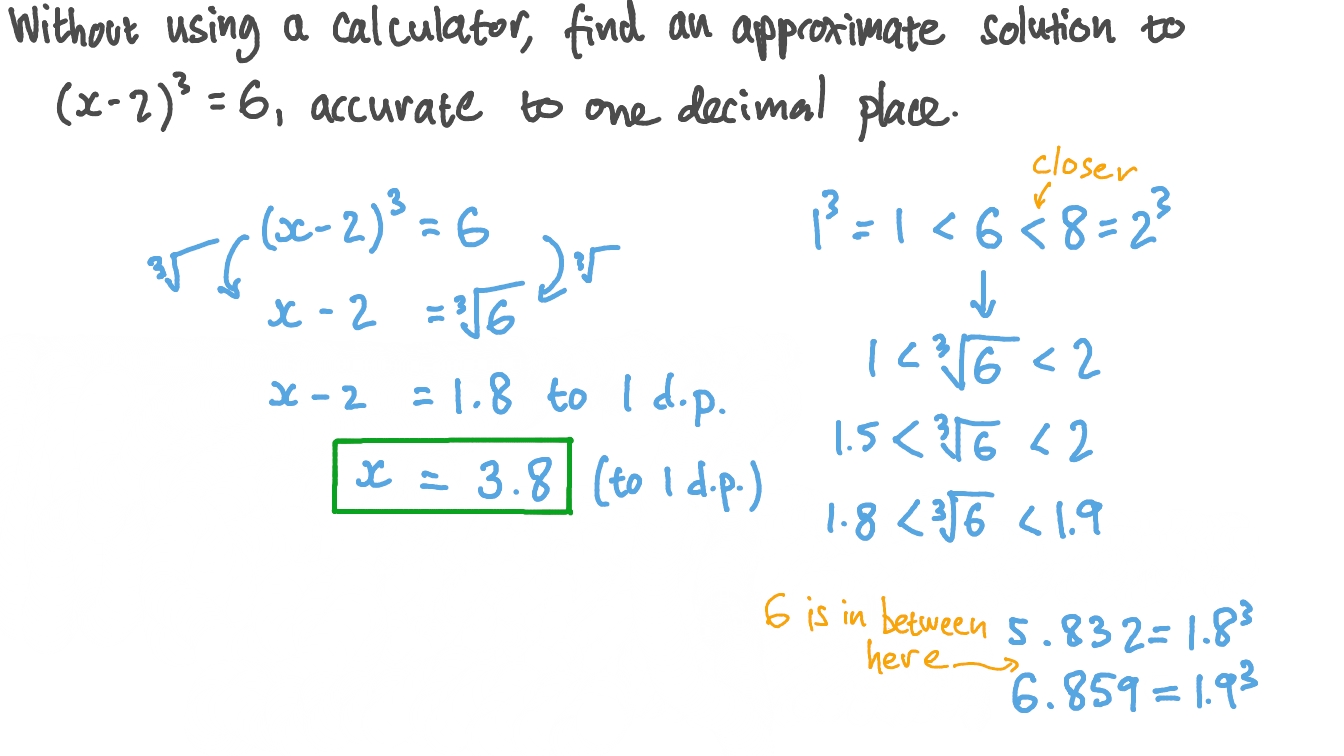 Without using a calculator, find an approximate solution to
(x-2)³ = 6, accurate to one decimal place.
(x-2)³ = 6
∛ ∛
x - 2 = ∛6
x - 2 = 1.8 to 1 d.p.
x = 3.8 (to 1 d.p.)
closer
1³ = 1 < 6 < 8 = 2³
↓
1 < ∛6 < 2
1.5 < ∛6 < 2
1.8 < ∛6 < 1.9
6 is in between
here
5.832 = 1.8³
6.859 = 1.9³